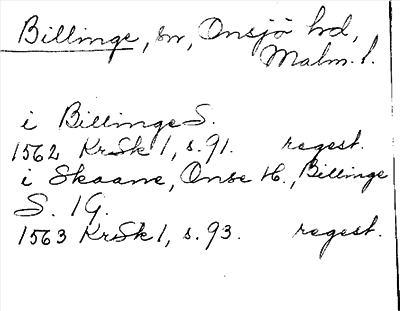 Billinge, sn, Onsjö hd,
Malm. l.
i Billinge S.
1562 KrSk 1, s. 91. regest.
i Skaane, Onse H., Billinge
S. 1 G.
1563 KrSk 1, s. 93. regest.